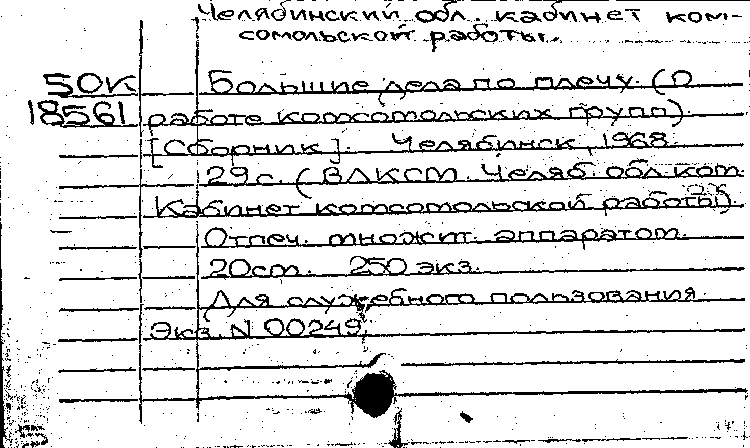 Челябинский обл. кабинет ком-
сомольской работы.
50К Большие дела по плечу. (О
18561 работе комсомольских групп).
[Сборник]. Челябинск, 1968.
29с. (ВЛКСМ. Челяб. обл. ком.
Кабинет комсомольской работы).
Отпеч. множит. аппаратом.
20см. 250 экз.
Для служебного пользования.
Экз. N 00249.